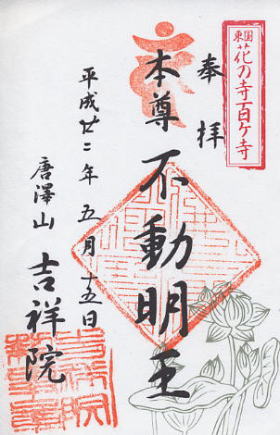 東国
花の寺百ヶ寺
奉拝
本尊 不動明王
平成廿二年五月十五日
唐澤山 吉祥院